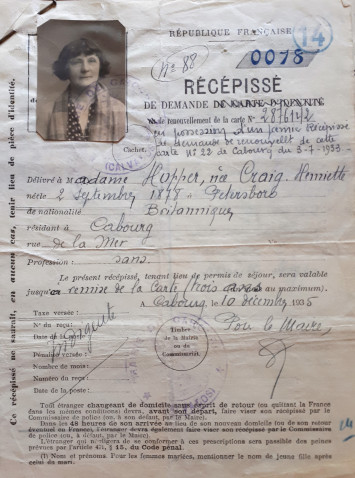 RÉPUBLIQUE FRANÇAISE
14
N° 88
0078
RÉCÉPISSÉ
DE DEMANDE DE CARTE D'IDENTITÉ
de renouvellement de la carte N° 2876112
en possession d'un Récépissé
de demande de renouvellt de cette
Carte N° 22 de Cabourg du 3-7-1933
Cachet
Délivré à Madame Hopper, née Craig Henriette
né(e) le 2 Septembre 1878 à Petersboro
de nationalité Britannique
résidant à Cabourg
rue de la Mer
Profession : sans
Le présent récépissé, tenant lieu de permis de séjour, sera valable
jusqu'à remise de la Carte (trois au maximum).
A Cabourg, le 10 décembre 1935
Taxe versée :
N° du reçu :
Date
Pour le Maire,
Timbre
de la Mairie
ou du
Commissariat.
Pénal. versée :
Nombre de mois :
Numéro du reçu :
Date de la poste :
Ce récépissé ne saurait, en aucun cas, tenir lieu de pièce d'identité.
Tout étranger changeant de domicile sans esprit de retour (ou quittant la France
dans les mêmes conditions) devra, avant son départ, faire viser son récépissé par le
Commissaire de police (ou, à son défaut, par le Maire).
Dans les 48 heures de son arrivée au lieu de son nouveau domicile (ou de son retour
éventuel en France), l'étranger devra également faire viser son récépissé par le Commissaire
de police (ou, à défaut, par le Maire).
L'étranger qui négligera de se conformer à ces prescriptions sera passible des peines
prévues par l'article 471, § 15, du Code pénal.
(1) Nom et prénoms. Pour les femmes mariées, mentionner le nom de jeune fille après
celui du mari.